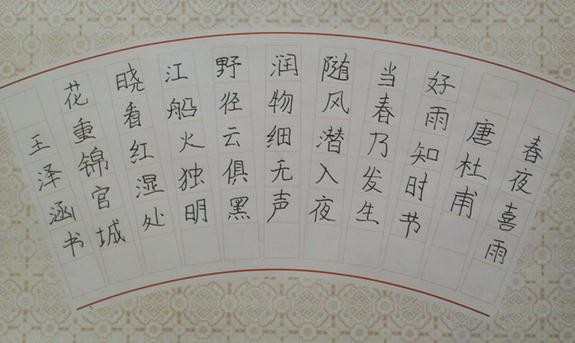 春夜喜雨
唐杜甫
好雨知时节
当春乃发生
随风潜入夜
润物细无声
野径云俱黑
江船火独明
晓看红湿处
花重锦官城
王泽涵书